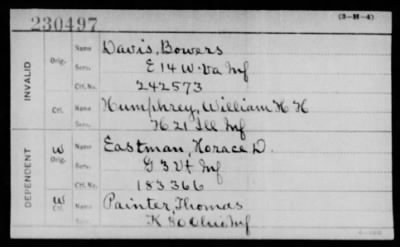 230497 (3-H-4)
INVALID
Orig. Name Davis, Bowers
Serv. E 14 W. Va Inf
Ctf. No. 242573
Ctf. Name Humphrey, William H H
Serv. H 21 Ill Inf
DEPENDENT
W Orig. Name Eastman, Horace D.
Serv. G 3 Vt Inf
Ctf. No. 183366
W Ctf. Name Painter, Thomas
Serv. K 80 Ohio Inf